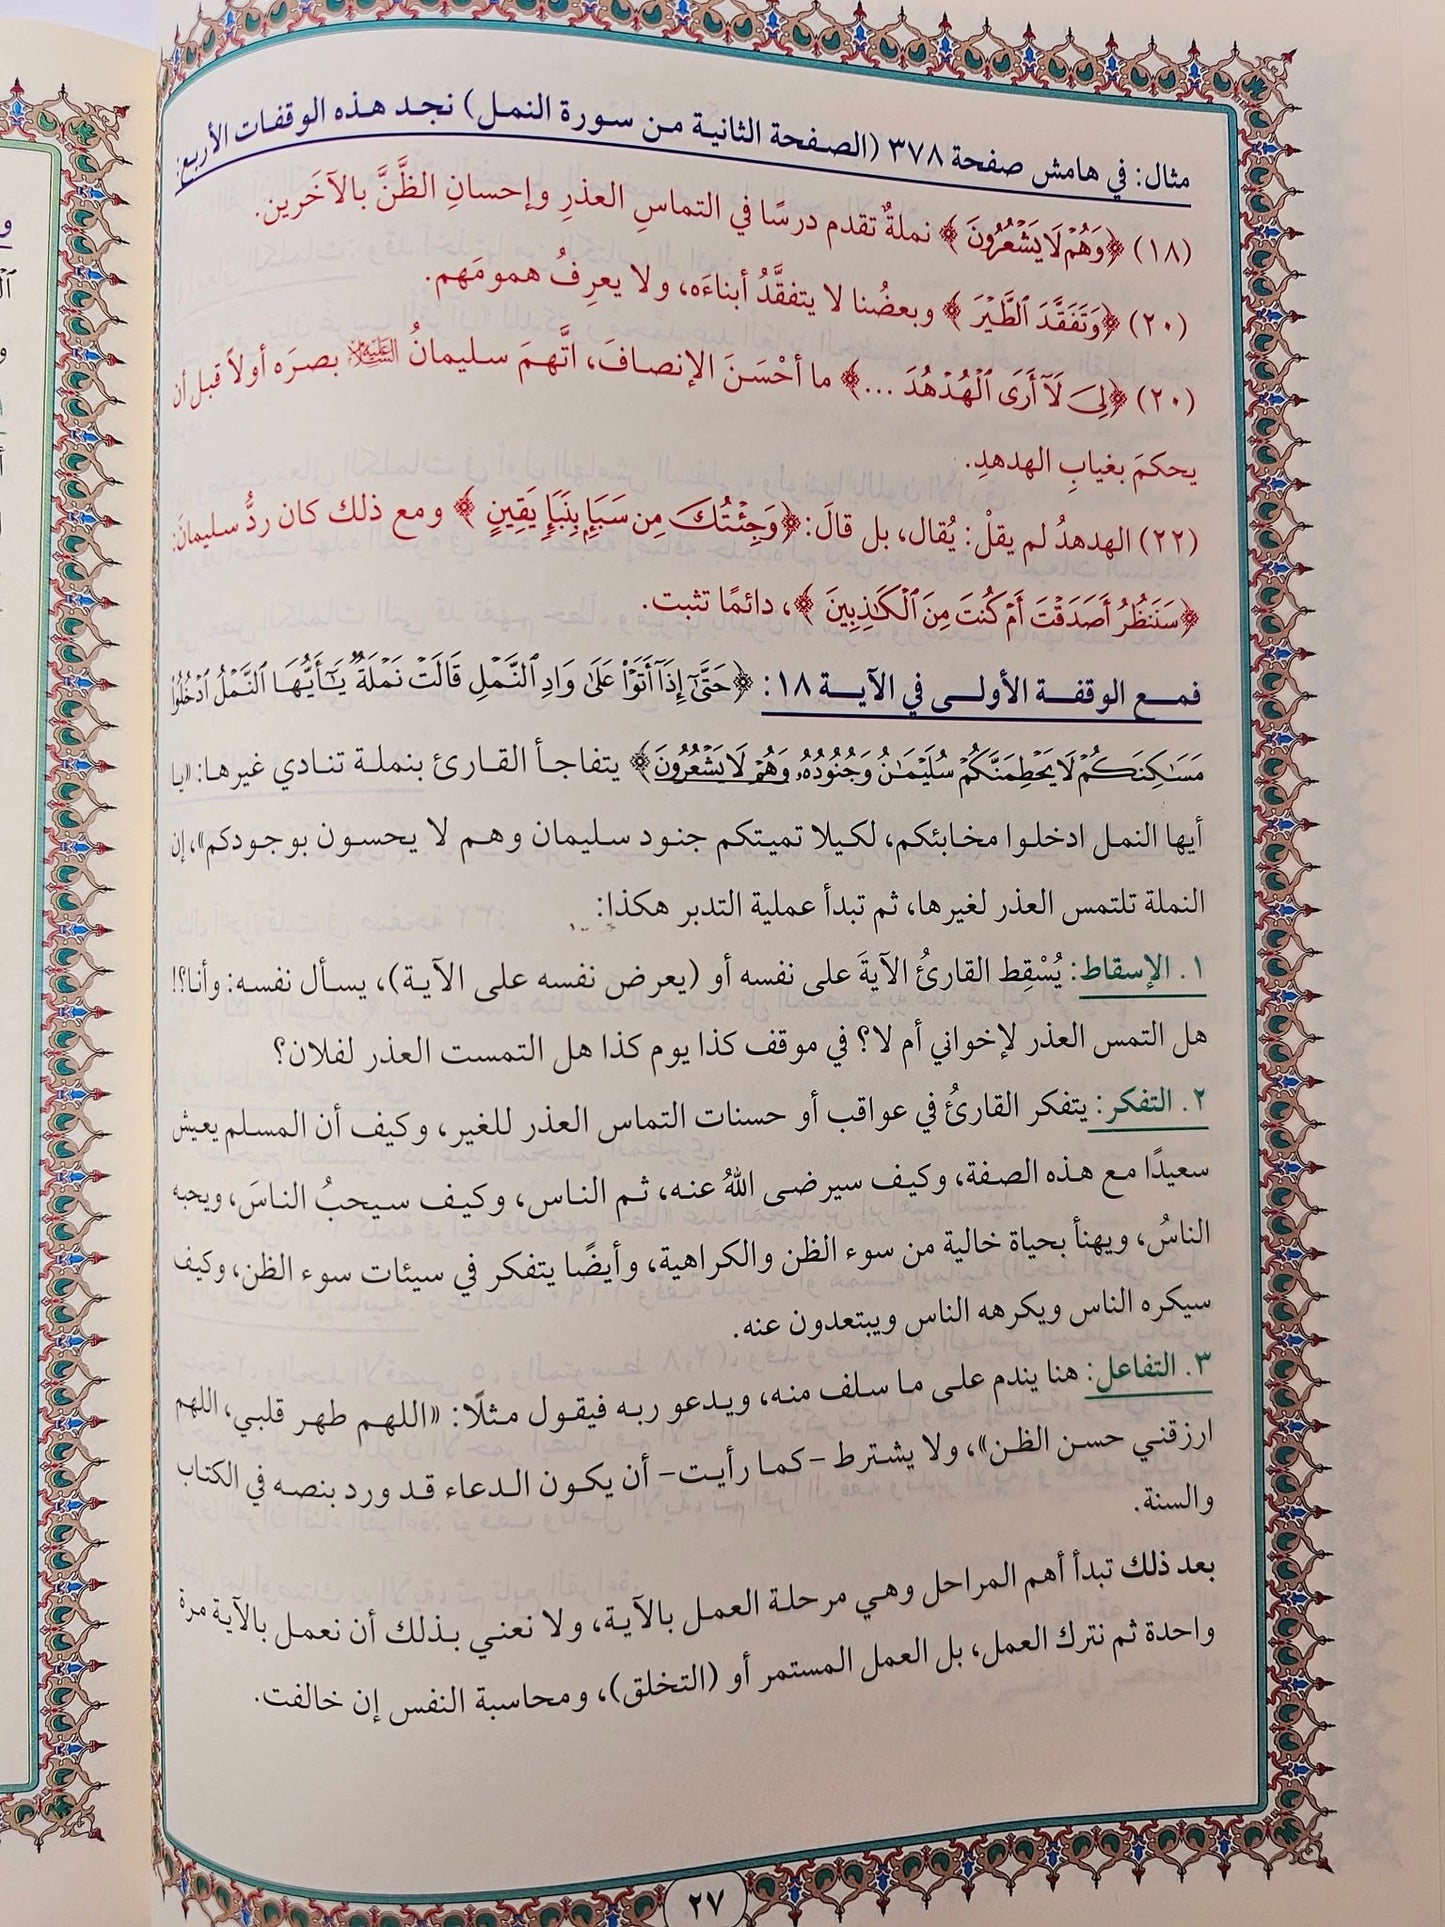 مثال: في هامش صفحة ٣٧٨ (الصفحة الثانية من سورة النمل) نجد هذه الوقفات الأربع:
(١٨) ﴿وَهُمْ لَا يَشْعُرُونَ﴾ نملةٌ تقدم درسًا في التماسِ العذرِ وإحسانِ الظَّنَّ بالآخَرين.
(٢٠) ﴿وَتَفَقَّدَ ٱلطَّيْرَ﴾ وبعضُنا لا يتفقَّدُ أبناءَه، ولا يعرِفُ همومَهم.
(٢٠) ﴿لِىَ لَآ أَرَى ٱلْهُدْهُدَ ...﴾ ما أحْسَنَ الإنصافَ، اتَّهمَ سليمانُ عليه السلام بصرَه أولاً قبل أن
يحكمَ بغيابِ الهدهدِ.
(٢٢) الهدهدُ لم يقلْ: يُقال، بل قالَ: ﴿وَجِئْتُكَ مِن سَبَإٍۭ بِنَبَإٍ يَقِينٍ﴾ ومع ذلك كان ردُّ سليمانَ:
﴿سَنَنظُرُ أَصَدَقْتَ أَمْ كُنتَ مِنَ ٱلْكَـٰذِبِينَ﴾، دائمًا تثبت.
فمع الوقفة الأولى في الآية ١٨: ﴿حَتَّىٰٓ إِذَآ أَتَوْا۟ عَلَىٰ وَادِ ٱلنَّمْلِ قَالَتْ نَمْلَةٌ يَـٰٓأَيُّهَا ٱلنَّمْلُ ٱدْخُلُوا۟
مَسَـٰكِنَكُمْ لَا يَحْطِمَنَّكُمْ سُلَيْمَـٰنُ وَجُنُودُهُۥ وَهُمْ لَا يَشْعُرُونَ﴾ يتفاجأ القارئ بنملة تنادي غيرها: «يا
أيها النمل ادخلوا مخابئكم، لكيلا تميتكم جنود سليمان وهم لا يحسون بوجودكم»، إن
النملة تلتمس العذر لغيرها، ثم تبدأ عملية التدبر هكذا:
١. الإسقاط: يُسْقِط القارئُ الآيةَ على نفسه أو (يعرض نفسه على الآية)، يسأل نفسه: وأنا؟!
هل التمس العذر لإخواني أم لا؟ في موقف كذا يوم كذا هل التمست العذر لفلان؟
٢. التفكر: يتفكر القارئُ في عواقب أو حسنات التماس العذر للغير، وكيف أن المسلم يعيش
سعيدًا مع هذه الصفة، وكيف سيرضى اللهُ عنه، ثم الناس، وكيف سيحبُ الناسَ، ويحبه
الناسُ، ويهنأ بحياة خالية من سوء الظن والكراهية، وأيضًا يتفكر في سيئات سوء الظن، وكيف
سيكره الناس ويكرهه الناس ويبتعدون عنه.
٣. التفاعل: هنا يندم على ما سلف منه، ويدعو ربه فيقول مثلًا: «اللهم طهر قلبي، اللهم
ارزقني حسن الظن»، ولا يشترط -كما رأيت- أن يكون الدعاء قد ورد بنصه في الكتاب
والسنة.
بعد ذلك تبدأ أهم المراحل وهي مرحلة العمل بالآية، ولا نعني بذلك أن نعمل بالآية مرة
واحدة ثم نترك العمل، بل العمل المستمر أو (التخلق)، ومحاسبة النفس إن خالفت.
٢٧